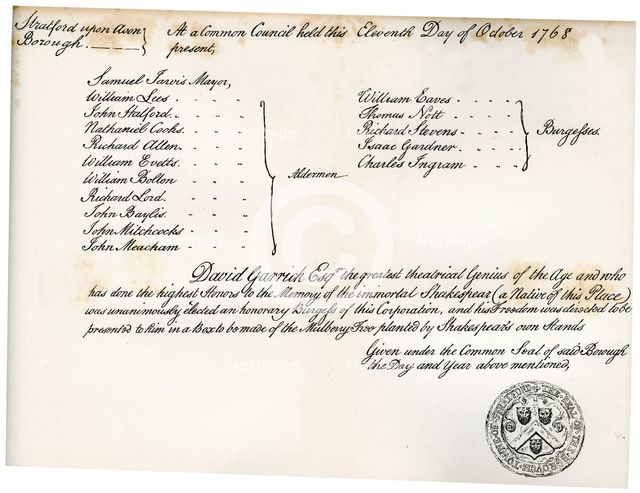 Stratford upon Avon
Borough.
At a Common Council held this Eleventh Day of October 1768
present,
Samuel Jarvis Mayor,
William Lees
John Halford
Nathaniel Cocks
Richard Allen
William Evetts
William Bolton
Richard Lord
John Baylis
John Mitchcocks
John Meacham
Aldermen
William Eaves
Thomas Nott
Richard Stevens
Isaac Gardner
Charles Ingram
Burgesses.
David Garrick Esqr. the greatest theatrical Genius of the Age and who
has done the highest Honors to the Memory of the immortal Shakespear (a Native of this Place)
was unanimously elected an honorary Burgess of this Corporation, and his Freedom was directed to be
presented to him in a Box to be made of the Mulberry Tree planted by Shakespear's own Hands
Given under the Common Seal of said Borough
the Day and Year above mentioned,
heritage